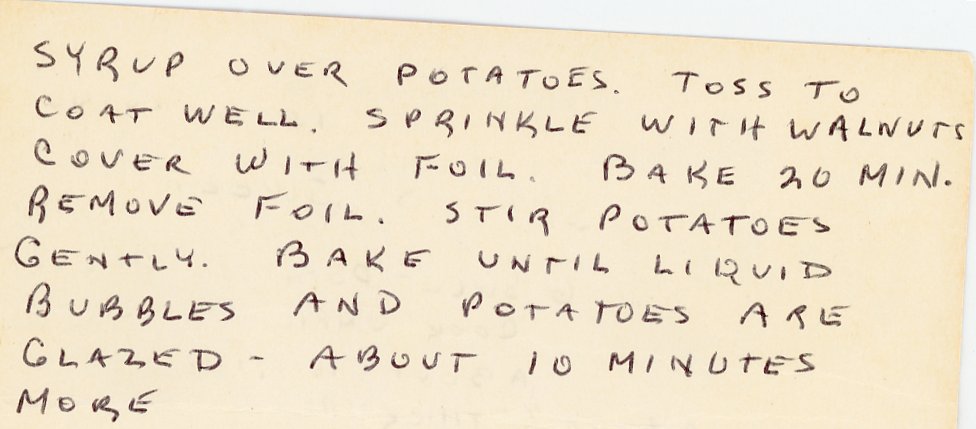 SYRUP OVER POTATOES. TOSS TO
COAT WELL. SPRINKLE WITH WALNUTS
COVER WITH FOIL. BAKE 20 MIN.
REMOVE FOIL. STIR POTATOES
GENTLY. BAKE UNTIL LIQUID
BUBBLES AND POTATOES ARE
GLAZED - ABOUT 10 MINUTES
MORE